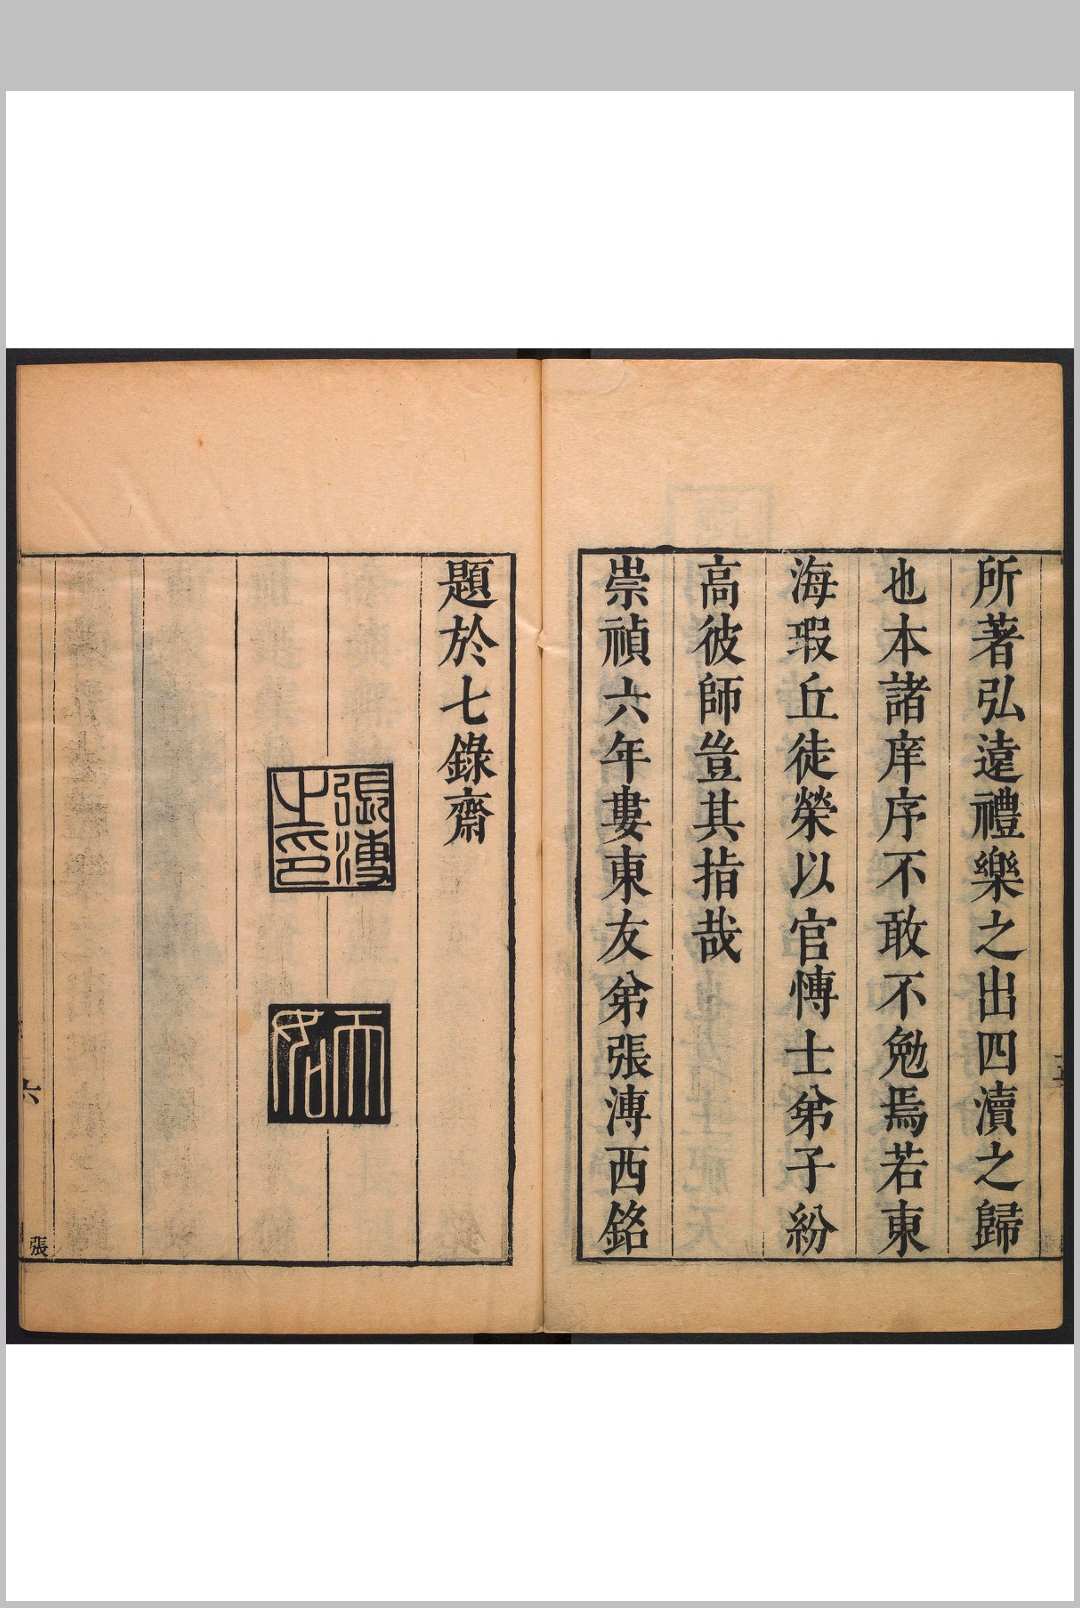 所著弘遠禮樂之出四瀆之歸
也本諸庠序不敢不勉焉若東
海瑕丘徒榮以官博士弟子紛
高彼師豈其指哉
崇禎六年婁東友弟張溥西銘
題於七錄齋
張溥之印
天如
六
張